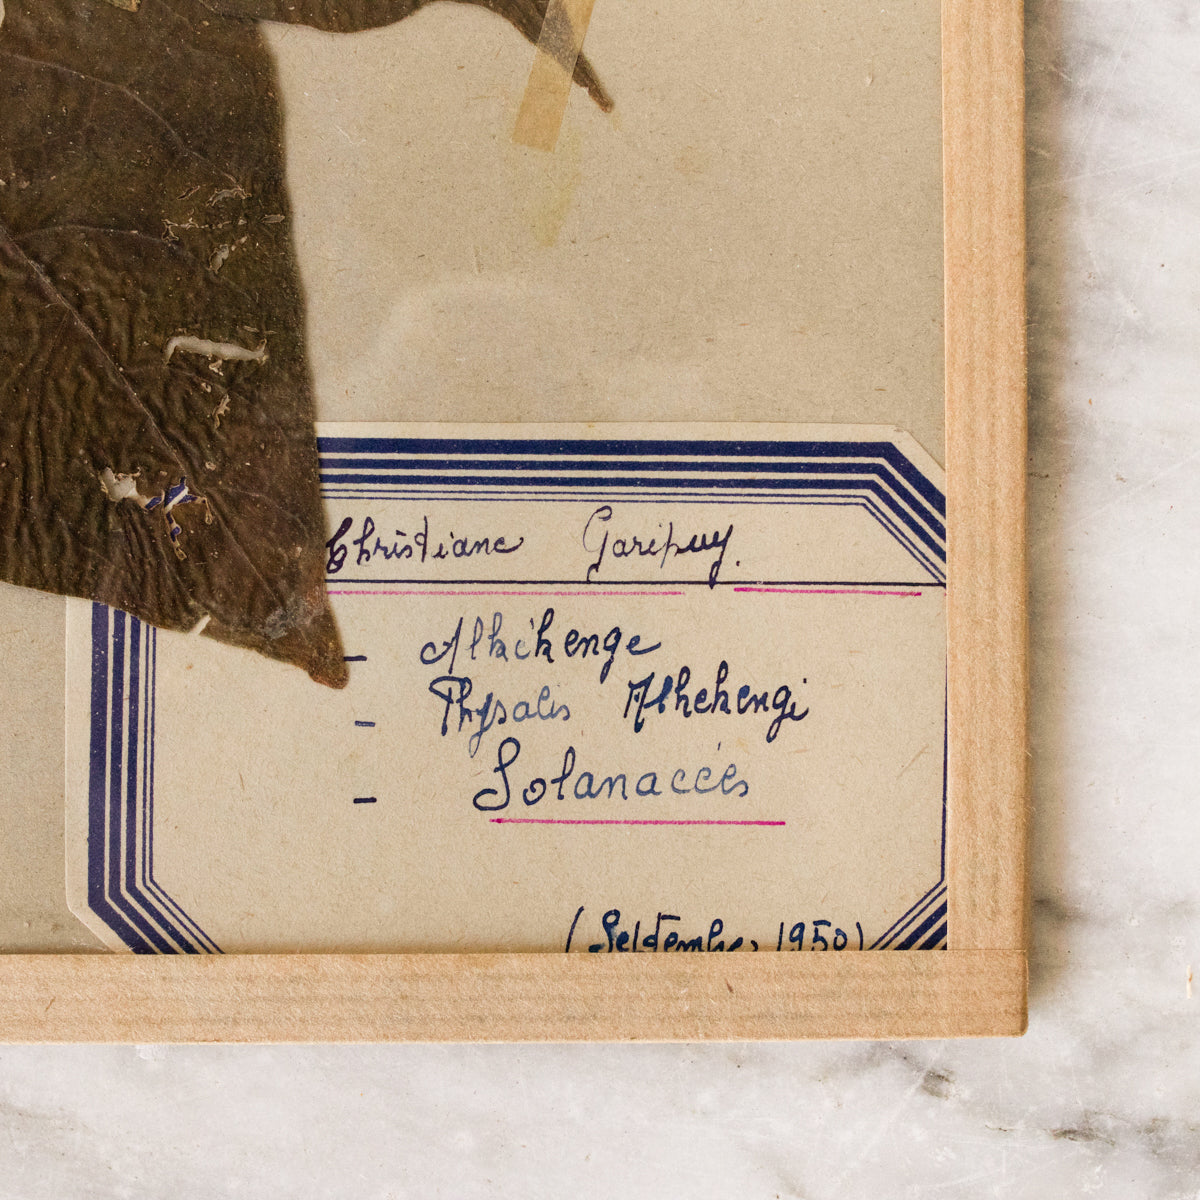 Christiane Garipuy.
- Alkékenge
- Physalis Alkekengi
- Solanacées
(Septembre 1950)